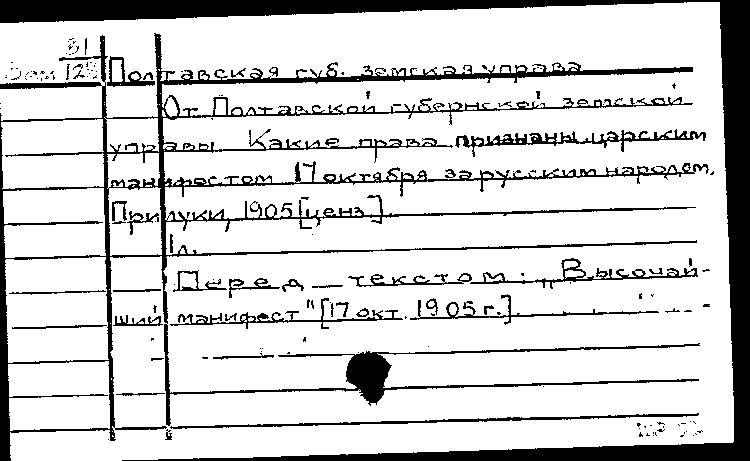 31
Полтавская губ. земская управа
От Полтавской губернской земской
управы. Какие права признаны царским
манифестом 17 октября за русским народом.
Прилуки, 1905 [ценз.].
1 л.
Перед текстом: „Высочай-
ший манифест" [17 окт. 1905 г.].